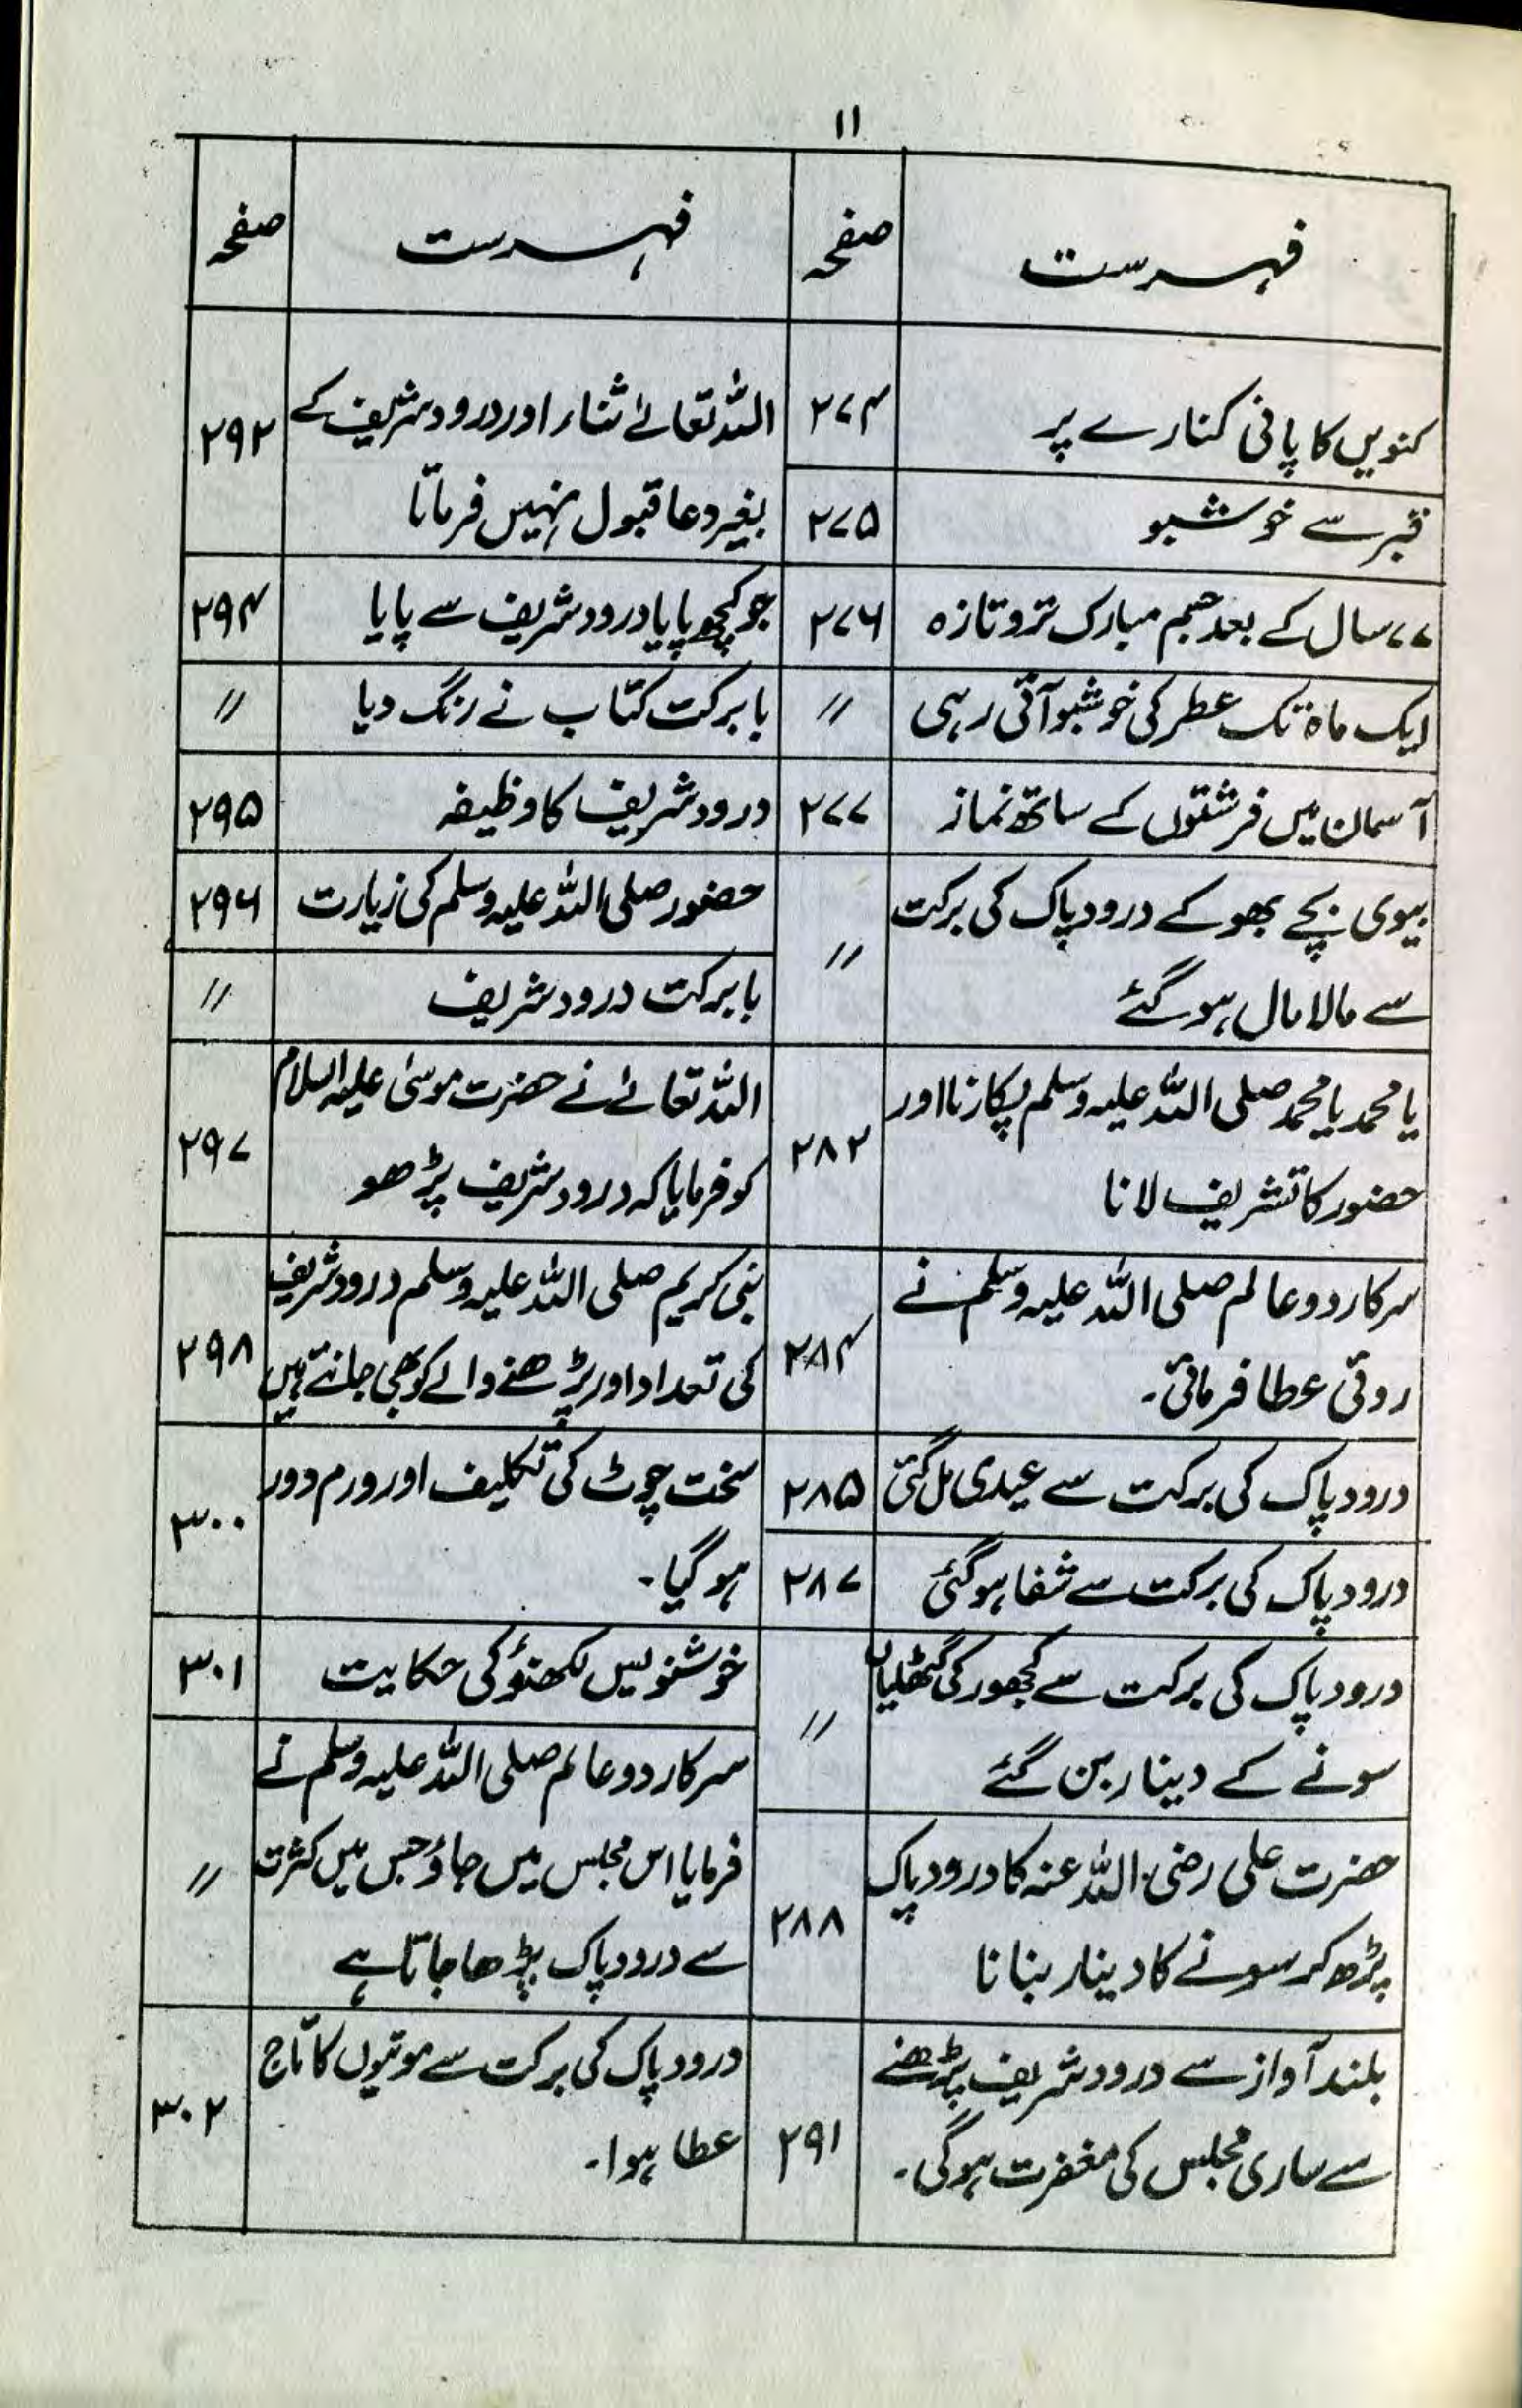 ۱۱
فہرست
صفحہ
کنویں کا پانی کنارے پر
۲۷۴
قبر سے خوشبو
۲۷۵
۷۷ سال کے بعد جسم مبارک تروتازہ
۲۷۶
ایک ماہ تک عطر کی خوشبو آتی رہی
〃
آسمان میں فرشتوں کے ساتھ نماز
۲۷۷
بیوی بچے بھوکے درود پاک کی برکت
سے مالا مال ہو گئے
〃
یا محمد یا محمد صلی اللہ علیہ وسلم پکارنا اور
حضور کا تشریف لانا
۲۸۲
سرکار دو عالم صلی اللہ علیہ وسلم نے
روٹی عطا فرمائی۔
۲۸۴
درود پاک کی برکت سے عیدی مل گئی
۲۸۵
درود پاک کی برکت سے شفا ہو گئی
۲۸۷
درود پاک کی برکت سے کھجور کی گٹھلیاں
سونے کے دینار بن گئے
〃
حضرت علی رضی اللہ عنہ کا درود پاک
پڑھ کر سونے کا دینار بنانا
۲۸۸
بلند آواز سے درود شریف پڑھنے
سے ساری مجلس کی مغفرت ہو گی۔
۲۹۱
فہرست
صفحہ
اللہ تعالےٰ ثناء اور درود شریف کے
بغیر دعا قبول نہیں فرماتا
۲۹۲
جو کچھ پایا درود شریف سے پایا
۲۹۴
بابرکت کتاب نے رنگ دیا
〃
درود شریف کا وظیفہ
۲۹۵
حضور صلی اللہ علیہ وسلم کی زیارت
۲۹۶
بابرکت درود شریف
〃
اللہ تعالےٰ نے حضرت موسیٰ علیہ السلام
کو فرمایا کہ درود شریف پڑھو
۲۹۷
نبی کریم صلی اللہ علیہ وسلم درود شریف
کی تعداد اور پڑھنے والے کو بھی جانتے ہیں
۲۹۸
سخت چوٹ کی تکلیف اور ورم دور
ہو گیا۔
۳۰۰
خوشنویس لکھنؤ کی حکایت
۳۰۱
سرکار دو عالم صلی اللہ علیہ وسلم نے
فرمایا اس مجلس میں جاؤ جس میں کثرت
سے درود پاک پڑھا جاتا ہے
〃
درود پاک کی برکت سے موتیوں کا تاج
عطا ہوا۔
۳۰۲